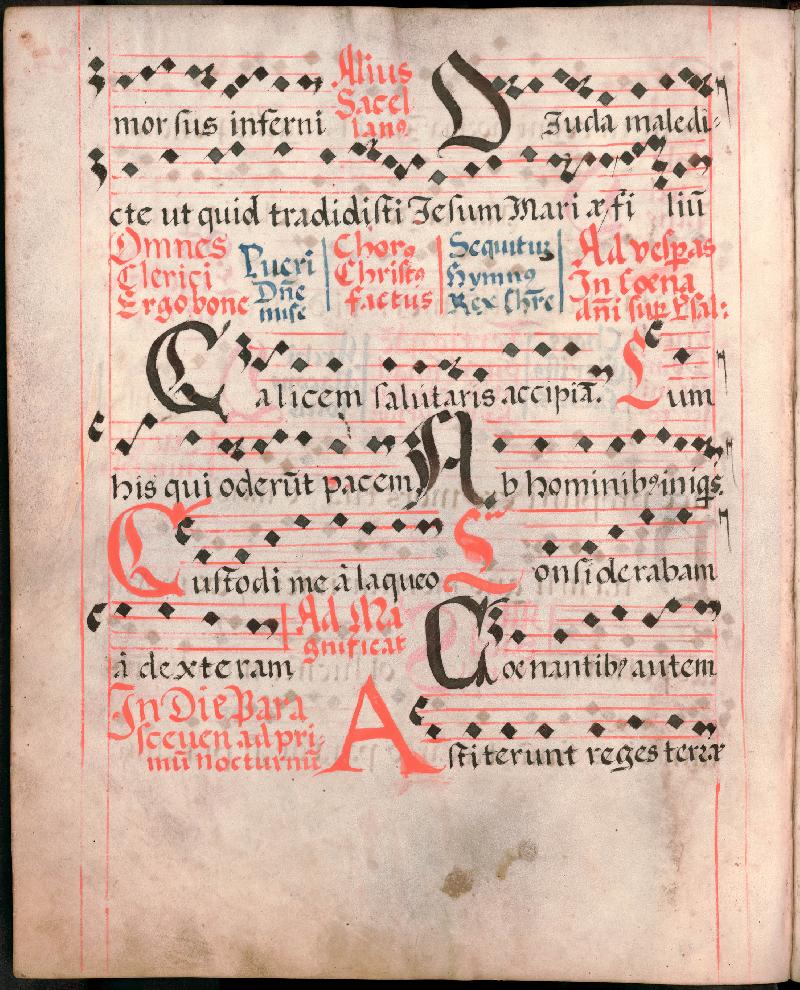 morsus inferni Alius Sacellanꝰ O Iuda maledi-
cte ut quid tradidisti Iesum Mariæ filiū
Omnes Clerici Ergo bone Pueri Dñe mise Chorꝰ Christꝰ factus Sequitur Hymnꝰ Rex Chr̄e Ad vesp̄as In Coena
Calicem salutaris accipiā. Cum
his qui oderūt pacem, Ab hominibꝰ iniqs.
Custodi me à laqueo Considerabam
à dexteram Ad Magnificat Coenantibꝰ autem
In Die Parasceven ad primū nocturnū Astiterunt reges terræ